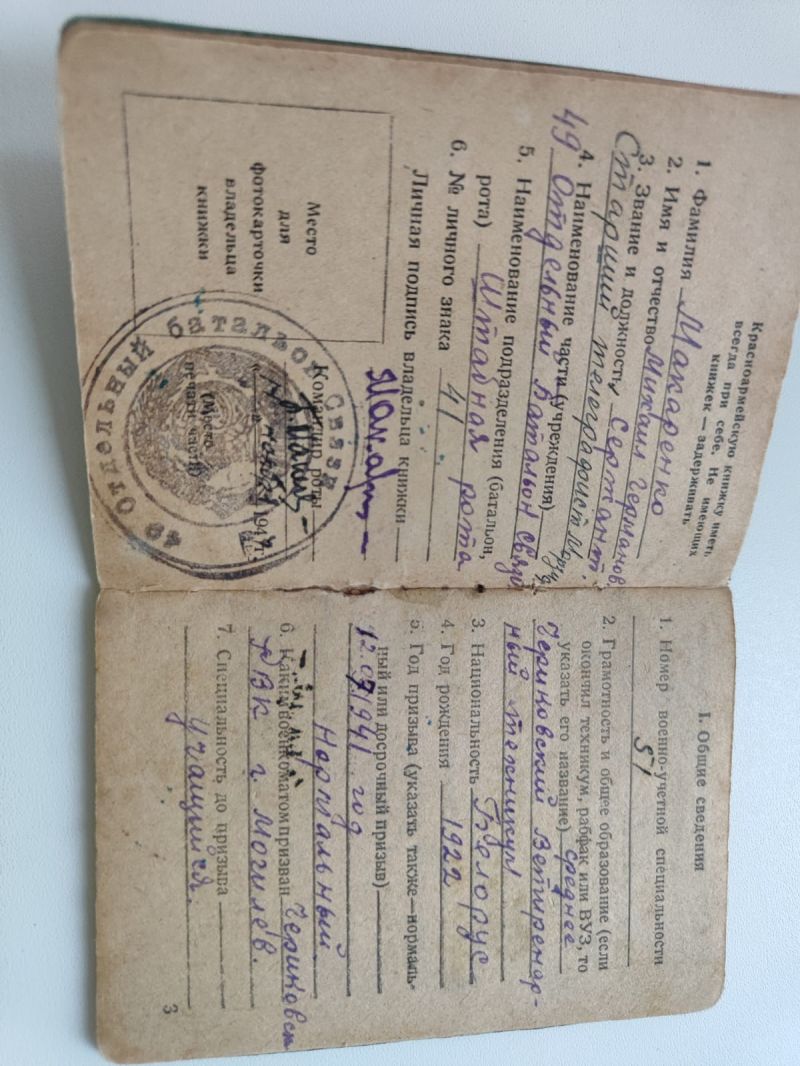 Красноармейскую книжку иметь
всегда при себе. Не имеющих
книжек — задерживать
1. Фамилия Макаренко
2. Имя и отчество Михаил Германов.
3. Звание и должность сержант.
Старший телеграфист Морзе
4. Наименование части (учреждения)
49 Отдельный Батальон Связи
5. Наименование подразделения (батальон,
рота) Штабная рота
6. № личного знака 41
Личная подпись владельца книжки
Место
для
фотокарточки
владельца
книжки
Командир роты
194 г.
(Место
печати части)
49 ОТДЕЛЬНЫЙ БАТАЛЬОН СВЯЗИ
I. Общие сведения
1. Номер военно-учетной специальности
51
2. Грамотность и общее образование (если
окончил техникум, рабфак или ВУЗ, то
указать его название) среднее
Чериковский Ветиренар-
ный техникум
3. Национальность Белорус
4. Год рождения 1922
5. Год призыва (указать также — нормаль-
ный или досрочный призыв)
12.07.1941 год
Нормальный.
6. Каким военкоматом призван Чериковск
РВК г. Могилев.
7. Специальность до призыва
Учащийся.
3